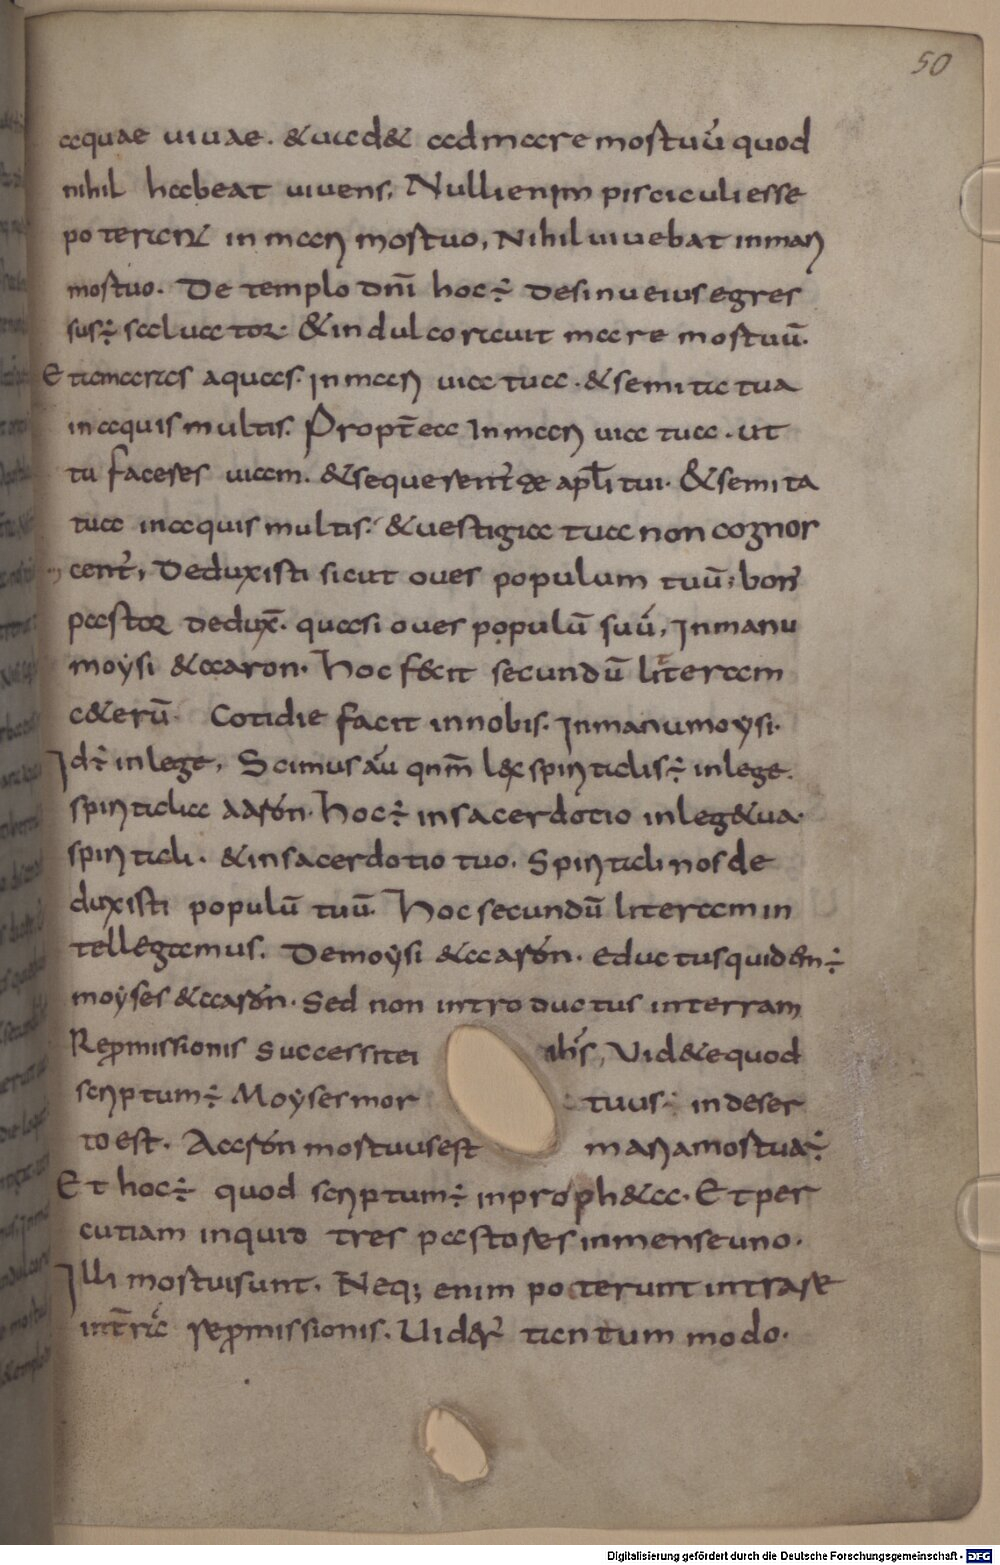 50
aquae uiuae. & uad& ad mare mostuū quod
nihil habeat uiuens. Nulli enim pisciculi esse
poterant in mari mostuo, Nihil uiuebat in mari
mostuo. De templo dn̄i hoc ÷ de sinu eius egres
sus ÷ saluator. & indulcorauit mare mostuū.
Etiamarias aquas. In mari uia tua. & semita tua
in aquis multis. Propt̄ea In mari uia tua. ut
tu faceres uiam. & sequerent̄ te apl̄i tui. & semita
tua in aquis multis. & uestigia tua non cognos
cent̄, Deduxisti sicut oues populum tuū; bon'
pastor dedux̄. quasi oues populū suū, In manu
moysi & aaron. hoc fecit secundū literam
c&erū. Cotidie facit in nobis. In manu moysi.
Id ÷ in lege, Scimus aū qnm̄ lex spiritalis ÷ in lege
spiritalia aaron. hoc ÷ in sacerdotio in leg& ua.
spiritali. & in sacerdotio tuo. Spiritali nos de
duxisti populū tuū. hoc secundū literam in
tellegamus. De moysi & aaron. Eductus quidem ÷
moyses & aaron. Sed non introductus in terram
Repromissionis successit ei ihs, Uid& e quod
scriptum ÷ Moyses mor tuus ÷ in deser
to est. Aaron mostuus est maria mostua ÷
Et hoc ÷ quod scriptum ÷ in proph&a. Et per
cutiam inquid tres pastores in mense uno.
Illi mostui sunt. Neq; enim poterunt intrare
in t̄ra repromissionis. Uider' tantum modo.
Digitalisierung gefördert durch die Deutsche Forschungsgemeinschaft - DFG